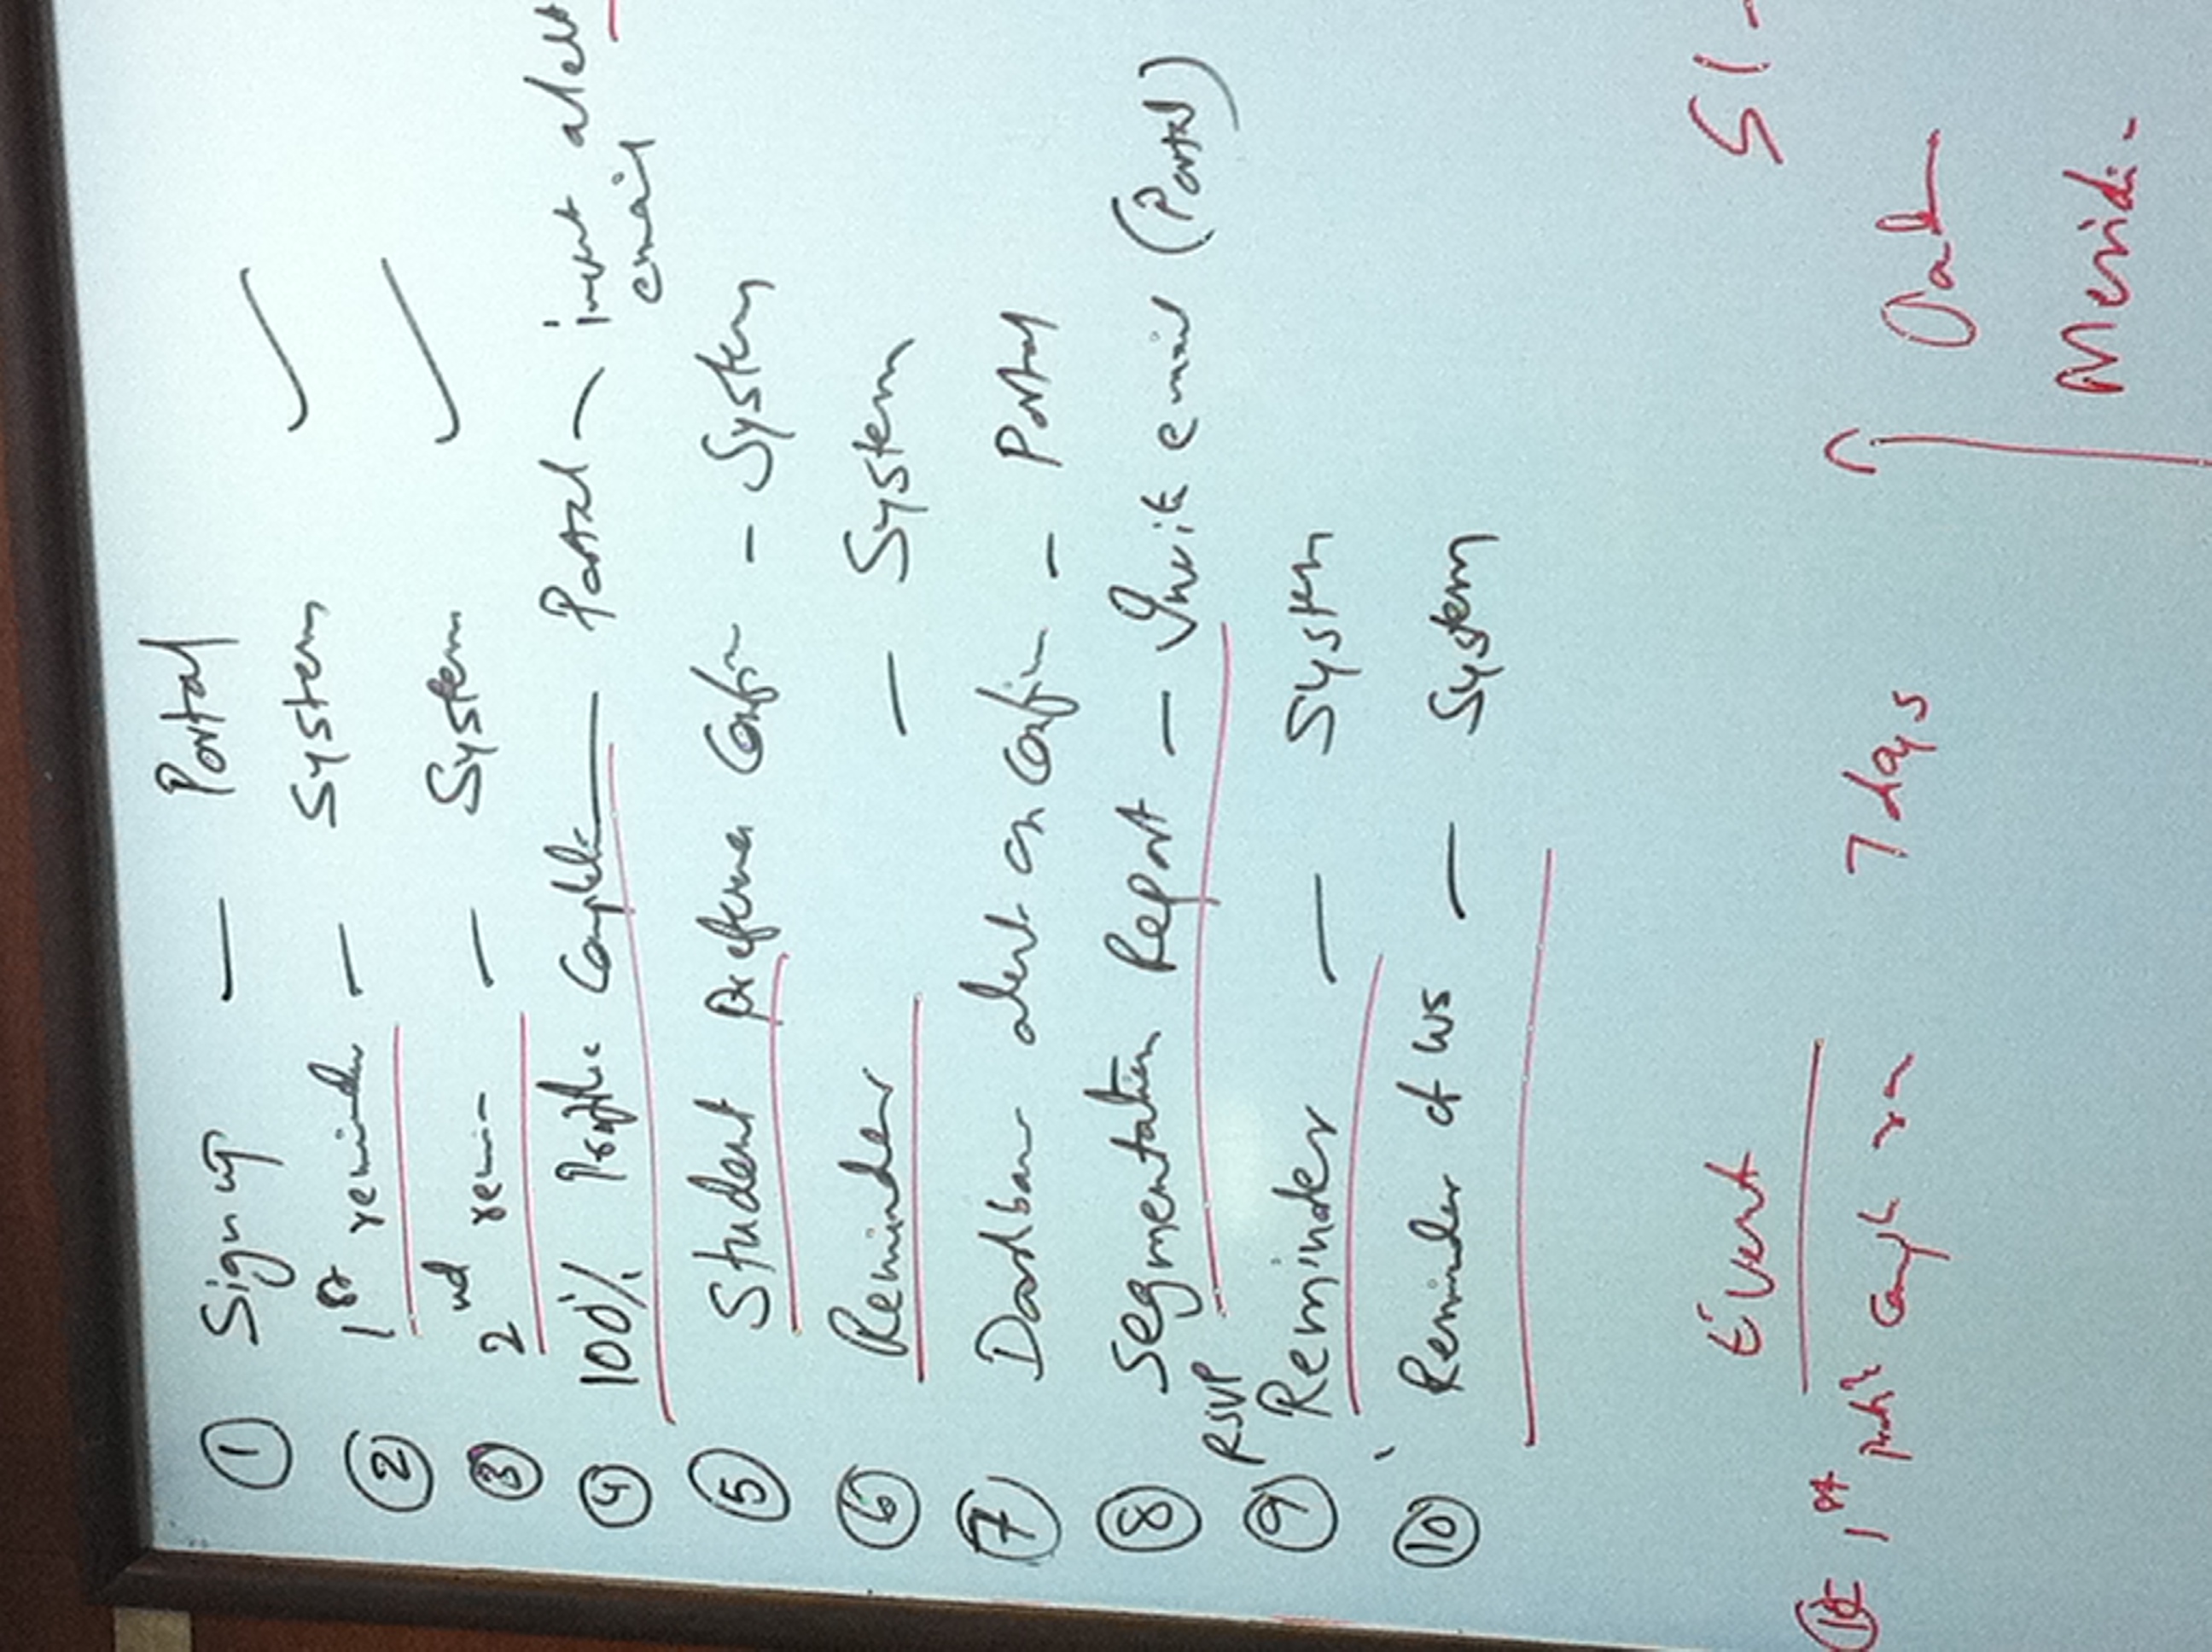 ① Sign up — Portal
② 1st reminder — System
③ 2nd remin — System
④ 100% Profile Complete — Portal — invent alert
email
⑤ Student preference Confirm - System
⑥ Reminder — System
⑦ Dashboar alert on Confirm - Portal
⑧ Segmentation Report — Invite email (Portal)
RSVP
⑨ Reminder — System
⑩ Reminder of WS — System
S1 -
Event
Date
1st 7 days
Meridi-